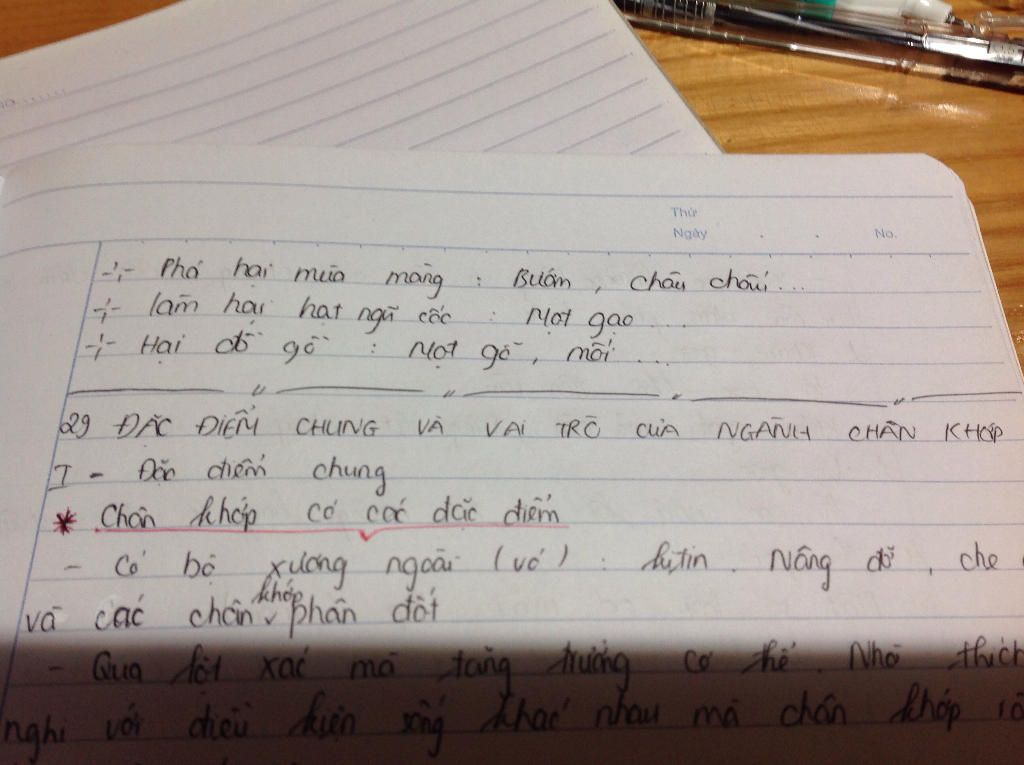 Thứ
Ngày . . No.
-:- Phá hại mùa màng : Bướm , châu chấu...
-:- làm hại hạt ngũ cốc : Mọt gạo ...
-:- Hại đồ gỗ : Mọt gỗ , mối ...
29 ĐẶC ĐIỂM CHUNG VÀ VAI TRÒ CỦA NGÀNH CHÂN KHỚP
I - Đặc điểm chung
* Chân khớp có các đặc điểm
- Có bộ xương ngoài (vỏ) : kitin . Nâng đỡ , che
và các chân khớp phân đốt
- Qua lột xác mà tăng trưởng cơ thể . Nhờ thích
nghi với điều kiện sống khác nhau mà chân khớp